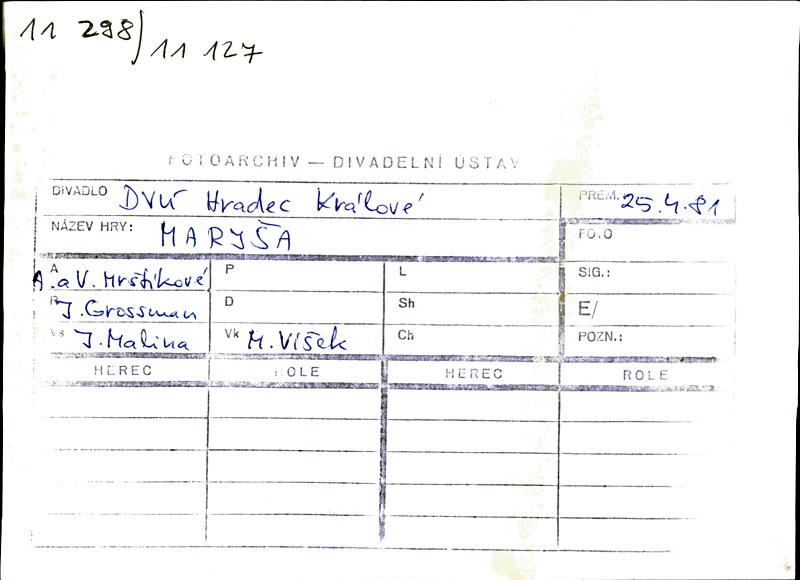 11 298/11 127
FOTOARCHIV — DIVADELNÍ ÚSTAV
DIVADLO DVÚ Hradec Králové PREM. 25.4.81
NÁZEV HRY: MARYŠA FOTO
A A. a V. Mrštíkové P L SIG.:
R J. Grossman D Sh E/
Vs J. Malina Vk M. Víšek Ch POZN.:
HEREC ROLE HEREC ROLE